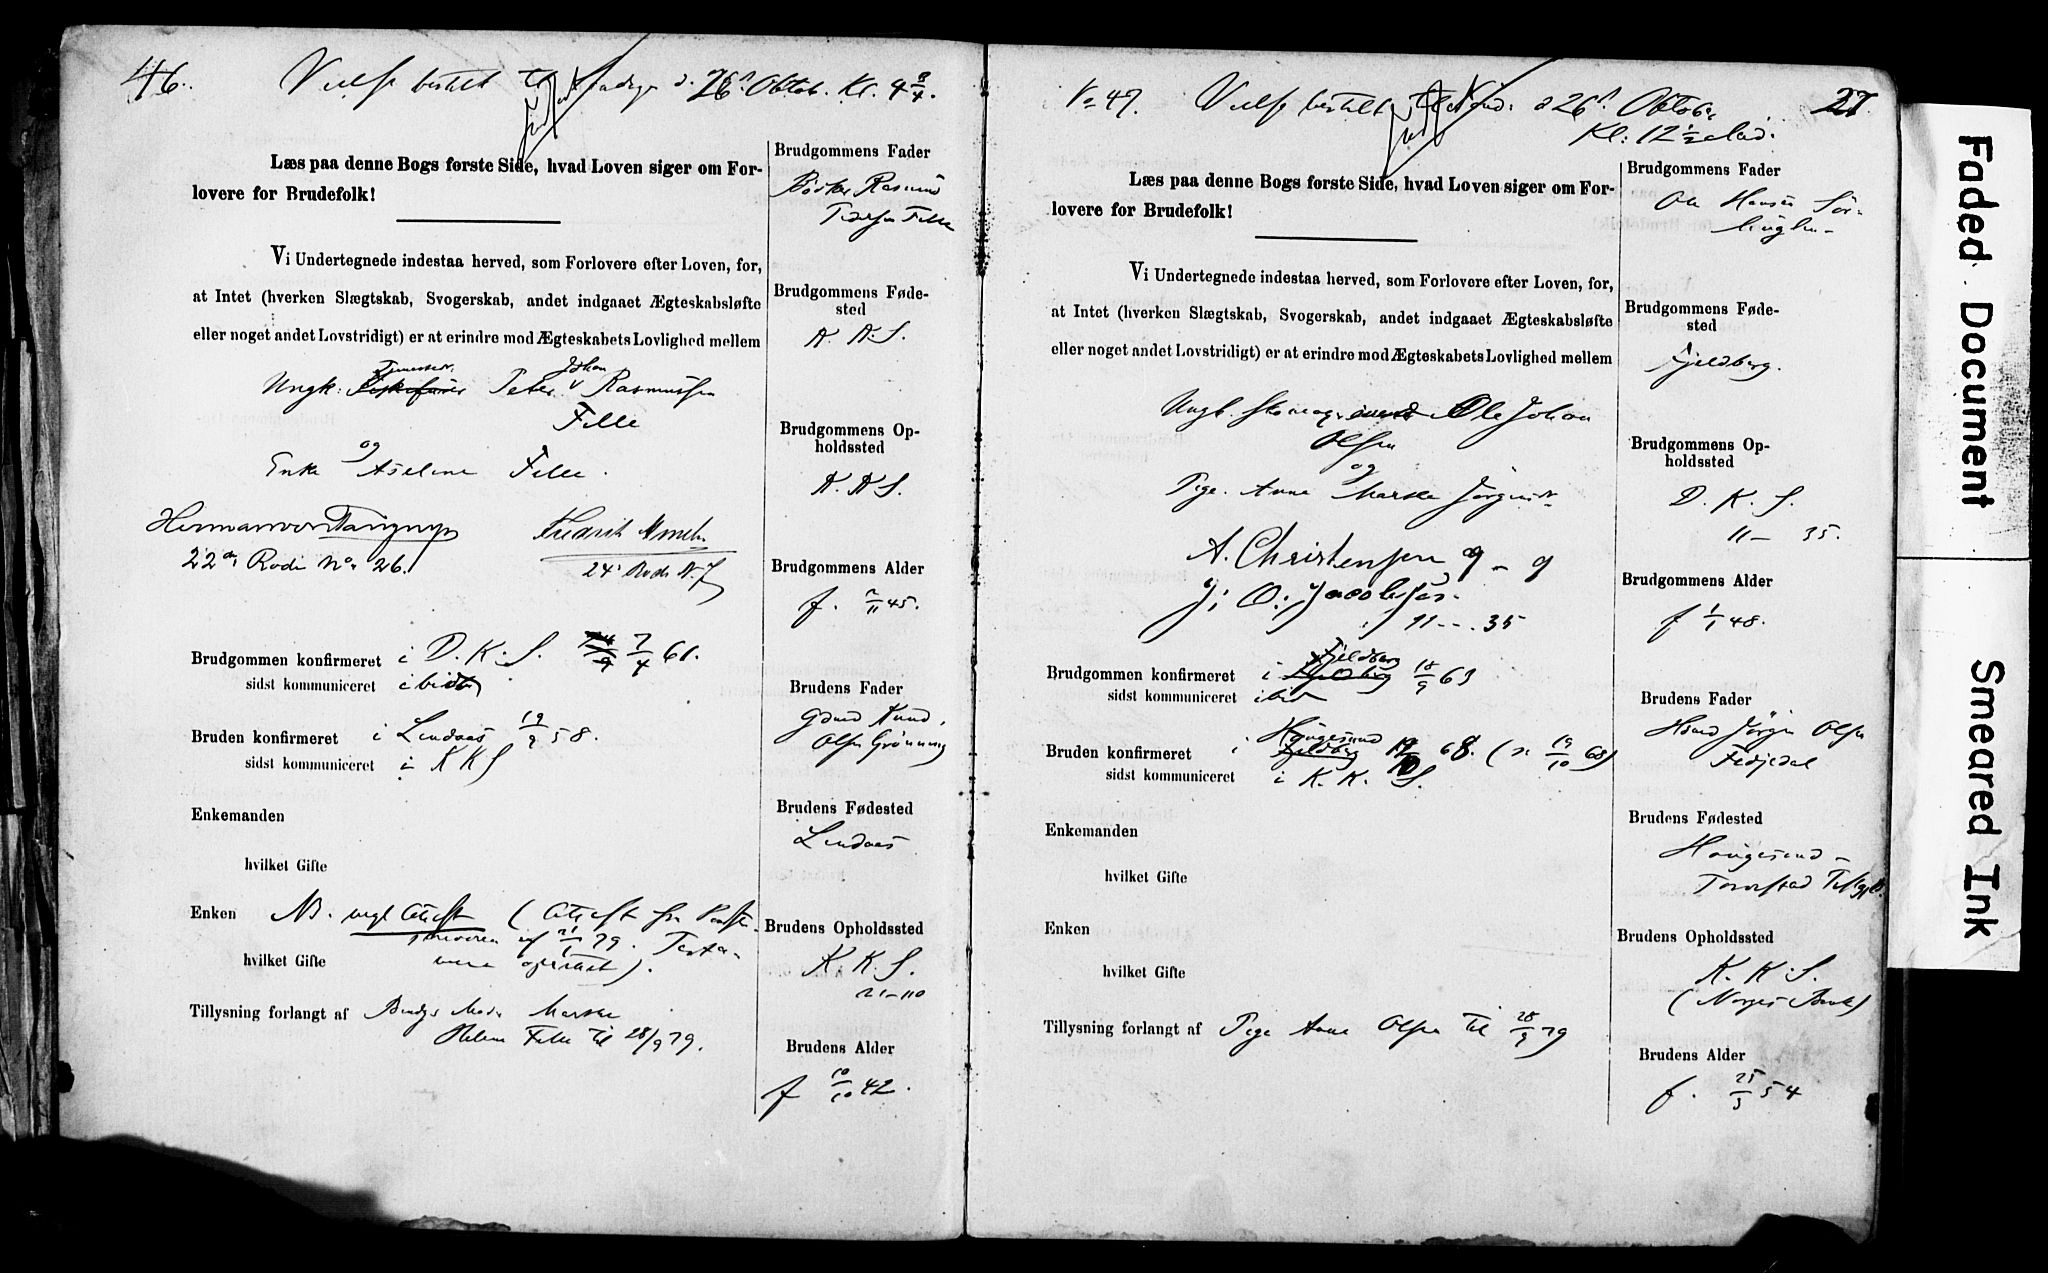 46.
Vielse bestilt til Søndag d. 26. Oktob. Kl. 4 3/4.
Læs paa denne Bogs første Side, hvad Loven siger om For-
lovere for Brudefolk!
Vi Undertegnede indestaa herved, som Forlovere efter Loven, for,
at Intet (hverken Slægtskab, Svogerskab, andet indgaaet Ægteskabsløfte
eller noget andet Lovstridigt) er at erindre mod Ægteskabets Lovlighed mellem
Johan
Ungk. Peter Rasmussen
Fille
og
Enke Aseline Fille.
22de Rode No 26.
24 Rode N. 7
Brudgommen konfirmeret i D. K. S. 7/4 61.
sidst kommuniceret i
Bruden konfirmeret i Lindaas 19/9 58.
sidst kommuniceret i K K S
Enkemanden
hvilket Gifte
Enken NB. vegl Attest (Attest fra
21/1 79.
hvilket Gifte
Tillysning forlangt af Brudgs Moder Marthe
Helene Fille til 28/9 79.
Brudgommens Fader
Rasmus
Fille
Brudgommens Føde-
sted
N. K. S.
Brudgommens Op-
holdssted
N. K S.
Brudgommens Alder
f. 2/11 45.
Brudens Fader
Gmd Knud
Olsen Grønning
Brudens Fødested
Lindaas
Brudens Opholdssted
K. K. S.
21-110
Brudens Alder
f 10/10 42.
No 47.
Vielse bestilt til Sønd. d 26. Oktober
27.
Kl: 12 1/2
Læs paa denne Bogs første Side, hvad Loven siger om For-
lovere for Brudefolk!
Vi Undertegnede indestaa herved, som Forlovere efter Loven, for,
at Intet (hverken Slægtskab, Svogerskab, andet indgaaet Ægteskabsløfte
eller noget andet Lovstridigt) er at erindre mod Ægteskabets Lovlighed mellem
Ungk. Ole Johan
Olsen
og
Pige Anna Marthe Jørgine
A. Christensen og
J. O. Jacobsen.
11 - 35
Brudgommen konfirmeret i Fjeldberg 18/9 63
sidst kommuniceret ibid
Bruden konfirmeret i Haugesund 68. (n 19/10 68)
sidst kommuniceret i K. K. S.
Enkemanden
hvilket Gifte
Enken
hvilket Gifte
Tillysning forlangt af Pige Anna Olsen til 28/9 79
Brudgommens Fader
Ole Hansen
Brudgommens Føde-
sted
Fjeldberg.
Brudgommens Op-
holdssted
D. K. S.
11 - 35.
Brudgommens Alder
f 1/1 48.
Brudens Fader
Jørgen Olsen
Brudens Fødested
Haugesund
Torvestad
Brudens Opholdssted
K. K. S.
(Norges Bank)
Brudens Alder
f. 25/3 54
Faded Document
Smeared Ink